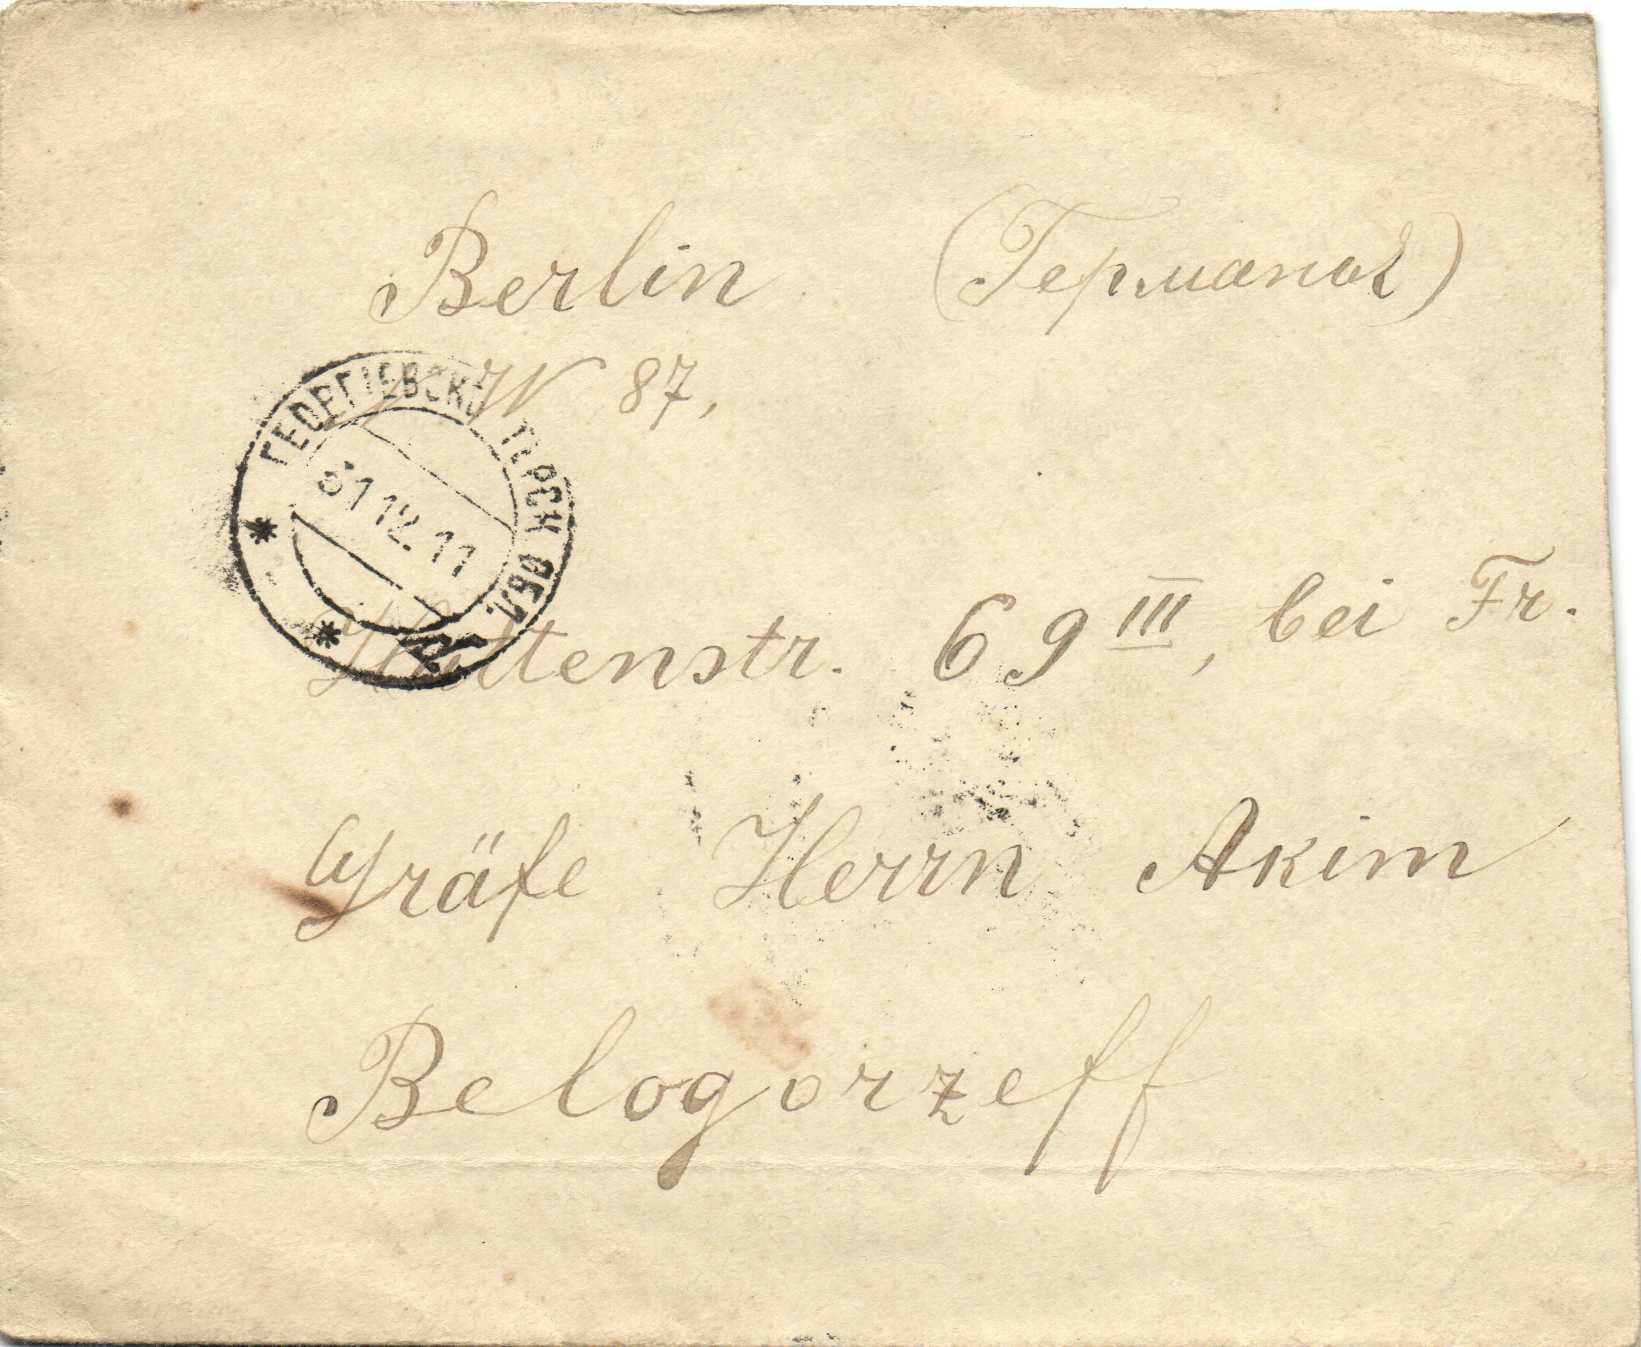 Berlin (Германія)
NW 87,
ГЕОРГІЕВСКЪ ТЕРСК ОБЛ.
31 12. 11
Huttenstr. 69 III, bei Fr.
Gräfe Herrn Akim
Belogorzeff